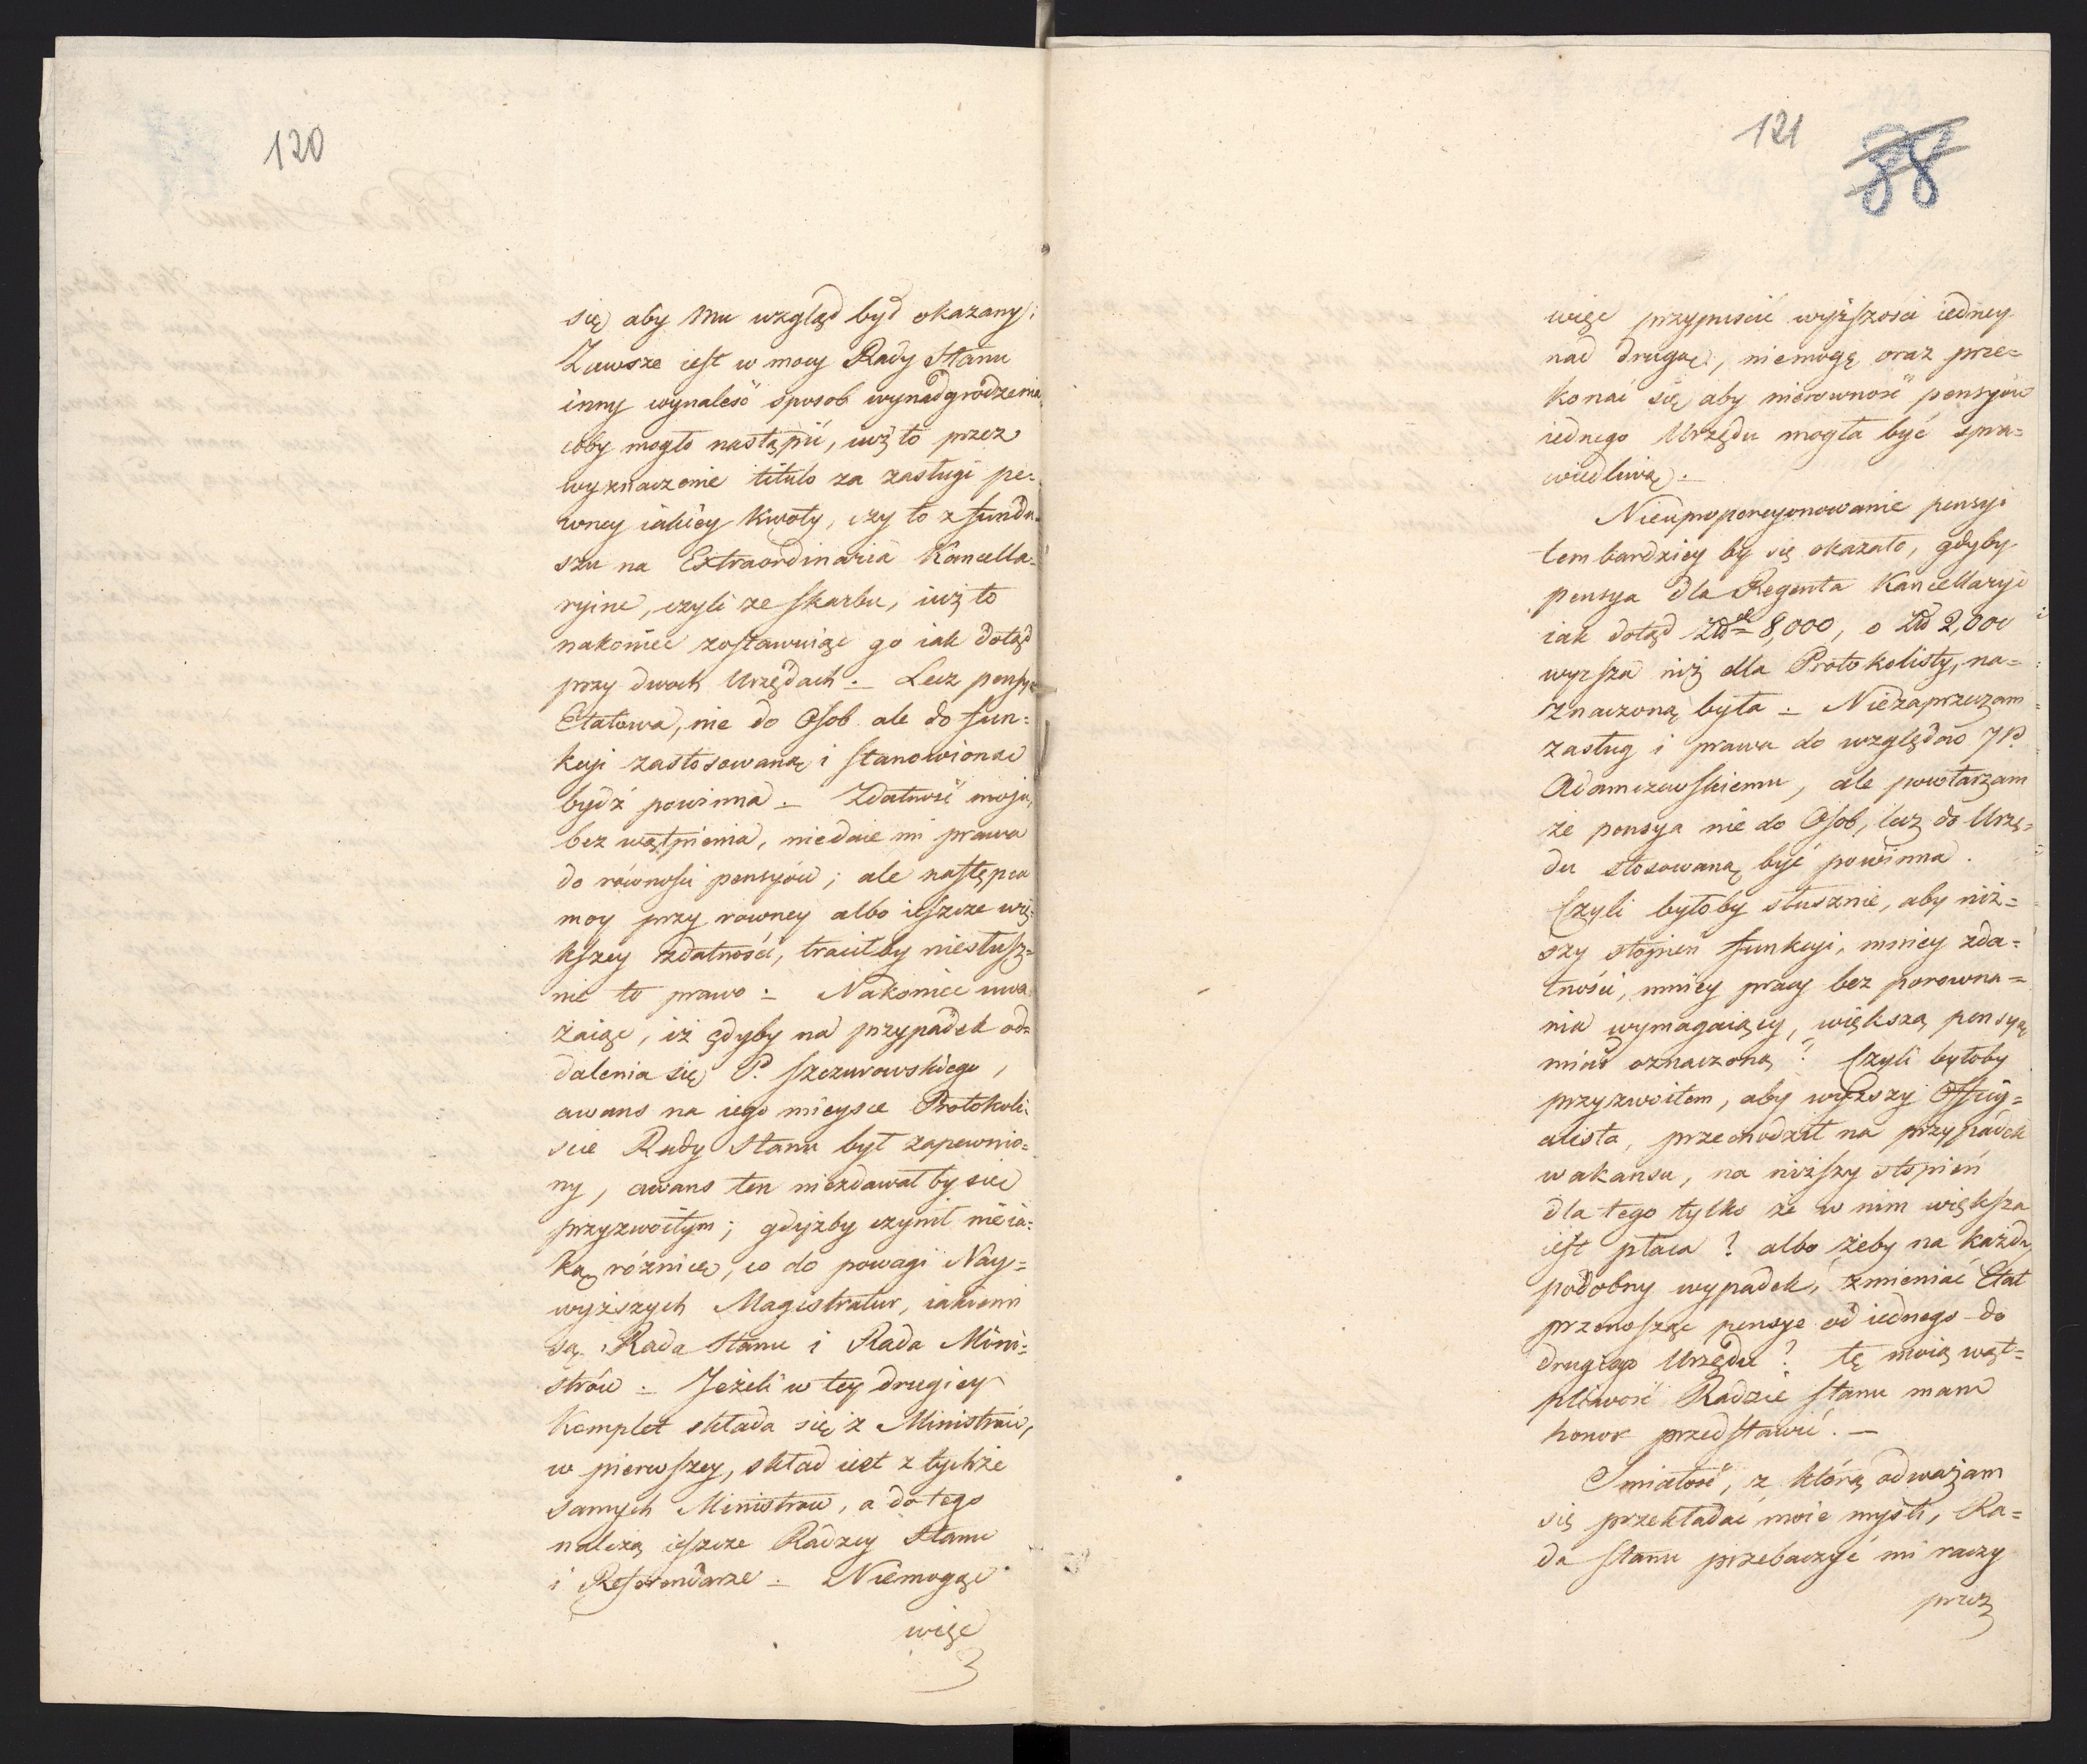 120
się aby mu wzgląd był okazany;
Zawsze iest w mocy Rady Stanu
inny wynaleść sposob wynadgrodzenia,
coby mogło nastąpić, iuż to przez
wyznaczenie titulo za zasługi pe=
wney iakiey kwoty, czy to z fundu=
szu na Extraordinaria Kancella=
ryine, czyli ze skarbu, iuż to
nakoniec zostawuiąc go iak dotąd
przy dwoch Urzędach. – Lecz pensya
Etatowa, nie do Osob ale do fun=
kcyi zastosowaną i stanowioną
bydź powinna. – Zdatność moja,
bez wątpienia, niedaie mi prawa
do równości pensyów; ale następca
moy przy rowney albo ieszcze wię=
kszey zdatności, traciłby niesłusz=
nie to prawo. – Nakoniec uwa
żaiąc, iż gdyby na przypadek od=
dalenia się P. Szczurowskiego,
awans na iego mieysce Protokoli=
scie Rady Stanu był zapewnio=
ny, awans ten niezdawał by sie
przyzwoitym; gdyżby czynił nieia=
ką różnicę, co do powagi Nay=
wyższych Magistratur, iakiemi
są Rada Stanu i Rada Mini=
strów. – Jeżeli w tey drugiey
komplet składa się z Ministrów,
w pierwszey, skład iest z tychże
samych Ministrow, a do tego
należą ieszcze Radzcy Stanu
i Referendarze. – Niemogąc
więc
121
88
więc przypuscić wyższości iedney
nad drugą, niemogę oraz prze=
konać się aby nierowność pensyów
iednego Urzędu mogła być spra=
wiedliwą. –
Nieuproporcyonowanie pensyi
tem bardziey by się okazało, gdyby
pensya dla Regenta Kancellaryi
iak dotąd Złł 8,000, o Złł 2,000
wyzsza niż dla Protokolisty, na=
znaczoną była. – Niezaprzeczam
zasług i prawa do względow JP.
Adamczewskiemu, ale powtarzam
że pensya nie do Osob, lecz do Urzę=
du stosowaną być powinna.
Czyli byłoby słusznie, aby niż=
szy stopień funkcyi, mniey zda=
tności, mniey pracy bez porowna=
nia wymagaiący, większą pensyą
miał oznaczoną? Czyli byłoby
przyzwoitem, aby wyższy Offícy=
alista, przechodził na przypadek
wakansu, na niższy stopień
dla tego tylko że w nim większa
iest płaca? albo żeby na każdy
podobny wypadek, zmieniać Etat
przenosząc pensye od iednego do
drugiego Urzędu? tę moią wąt=
pliwość Radzie Stanu mam
honor przedstawić. –
Smiałość, z którą odważam
się przekładać moie myśli, Ra=
da Stanu przebaczyć mi raczy
przez